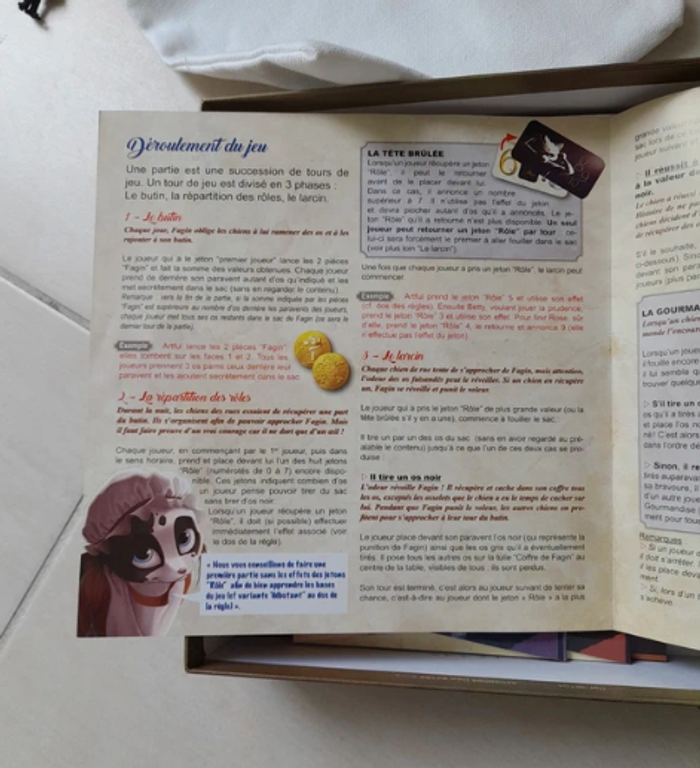 Déroulement du jeu
Une partie est une succession de tours de
jeu. Un tour de jeu est divisé en 3 phases :
Le butin, la répartition des rôles, le larcin.
1 - Le butin
Chaque jour, Fagin oblige les chiens à lui ramener des os et à les
rajouter à son butin.
Le joueur qui a le jeton "premier joueur" lance les 2 pièces
"Fagin" et fait la somme des valeurs obtenues. Chaque joueur
prend de derrière son paravent autant d'os qu'indiqué et les
met secrètement dans le sac (sans en regarder le contenu).
Remarque : vers la fin de la partie, si la somme indiquée par les pièces
"Fagin" est supérieure au nombre d'os derrière les paravents des joueurs,
chaque joueur met tous ses os restants dans le sac de Fagin (ce sera le
dernier tour de la partie).
Exemple : Artful lance les 2 pièces "Fagin",
elles tombent sur les faces 1 et 2. Tous les
joueurs prennent 3 os parmi ceux derrière leur
paravent et les ajoutent secrètement dans le sac.
2 - La répartition des rôles
Durant la nuit, les chiens des rues essaient de récupérer une part
du butin. Ils s'organisent afin de pouvoir approcher Fagin. Mais
il faut faire preuve d'un vrai courage car il ne dort que d'un œil !
Chaque joueur, en commençant par le 1er joueur, puis dans
le sens horaire, prend et place devant lui l'un des huit jetons
"Rôle" (numérotés de 0 à 7) encore dispo-
nible. Ces jetons indiquent combien d'os
un joueur pense pouvoir tirer du sac
sans tirer d'os noir.
Lorsqu'un joueur récupère un jeton
"Rôle", il doit (si possible) effectuer
immédiatement l'effet associé (voir
le dos de la règle).
« Nous vous conseillons de faire une
première partie sans les effets des jetons
"Rôle" afin de bien apprendre les bases
du jeu (cf variante "débutant" au dos de
la règle) ».
LA TÊTE BRÛLÉE
Lorsqu'un joueur récupère un jeton
"Rôle", il peut le retourner
avant de le placer devant lui.
Dans ce cas, il annonce un nombre
supérieur à 7. Il n'utilise pas l'effet du jeton
et devra piocher autant d'os qu'il a annoncés. Le je-
ton "Rôle" qu'il a retourné n'est plus disponible. Un seul
joueur peut retourner un jeton "Rôle" par tour : ce-
lui-ci sera forcément le premier à aller fouiller dans le sac
(voir plus loin "Le larcin").
6
Une fois que chaque joueur a pris un jeton "Rôle", le larcin peut
commencer.
Exemple : Artful prend le jeton "Rôle" 5 et utilise son effet
(cf. dos des règles). Ensuite Betty, voulant jouer la prudence,
prend le jeton "Rôle" 3 et utilise son effet. Pour finir Rose, sûr
d'elle, prend le jeton "Rôle" 4, le retourne et annonce 9 (elle
n'effectue pas l'effet du jeton).
3 - Le larcin
Chaque chien de rue tente de s'approcher de Fagin, mais attention,
l'odeur des os faisandés peut le réveiller. Si un chien en récupère
un, Fagin se réveille et punit le voleur.
Le joueur qui a pris le jeton "Rôle" de plus grande valeur (ou la
tête brûlée s'il y en a une), commence à fouiller le sac.
Il tire un par un des os du sac (sans en avoir regardé au pré-
alable le contenu) jusqu'à ce que l'un de ces deux cas se pro-
duise :
▷ Il tire un os noir
L'odeur réveille Fagin ! Il récupère et cache dans son coffre tous
les os, exceptés les osselets que le chien a eu le temps de cacher sur
lui. Pendant que Fagin punit le voleur, les autres chiens en pro-
fitent pour s'approcher à leur tour du butin.
Le joueur place devant son paravent l'os noir (qui représente la
punition de Fagin) ainsi que les os gris qu'il a éventuellement
tirés. Il pose tous les autres os sur la tuile "Coffre de Fagin" au
centre de la table, visibles de tous : ils sont perdus.
Son tour est terminé, c'est alors au joueur suivant de tenter sa
chance, c'est-à-dire au joueur dont le jeton « Rôle » a la plus
▷ Il réussit
à la valeur du
noir.
LA GOURMA
Lorsqu'un chien
Lorsqu'un joueu
▷ S'il tire un
▷ Sinon, il re
Remarques
▷ Si un joueur
il doit s'arrêter.
▷ Si, lors d'un
s'achève.